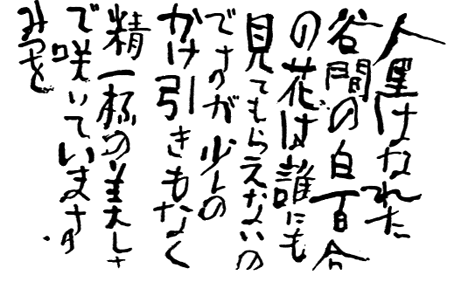 人里はなれた
谷間の白百合
の花は誰にも
見てもらえないの
ですが少しの
かけ引きもなく
精一杯の美しさ
で咲いています
みつを